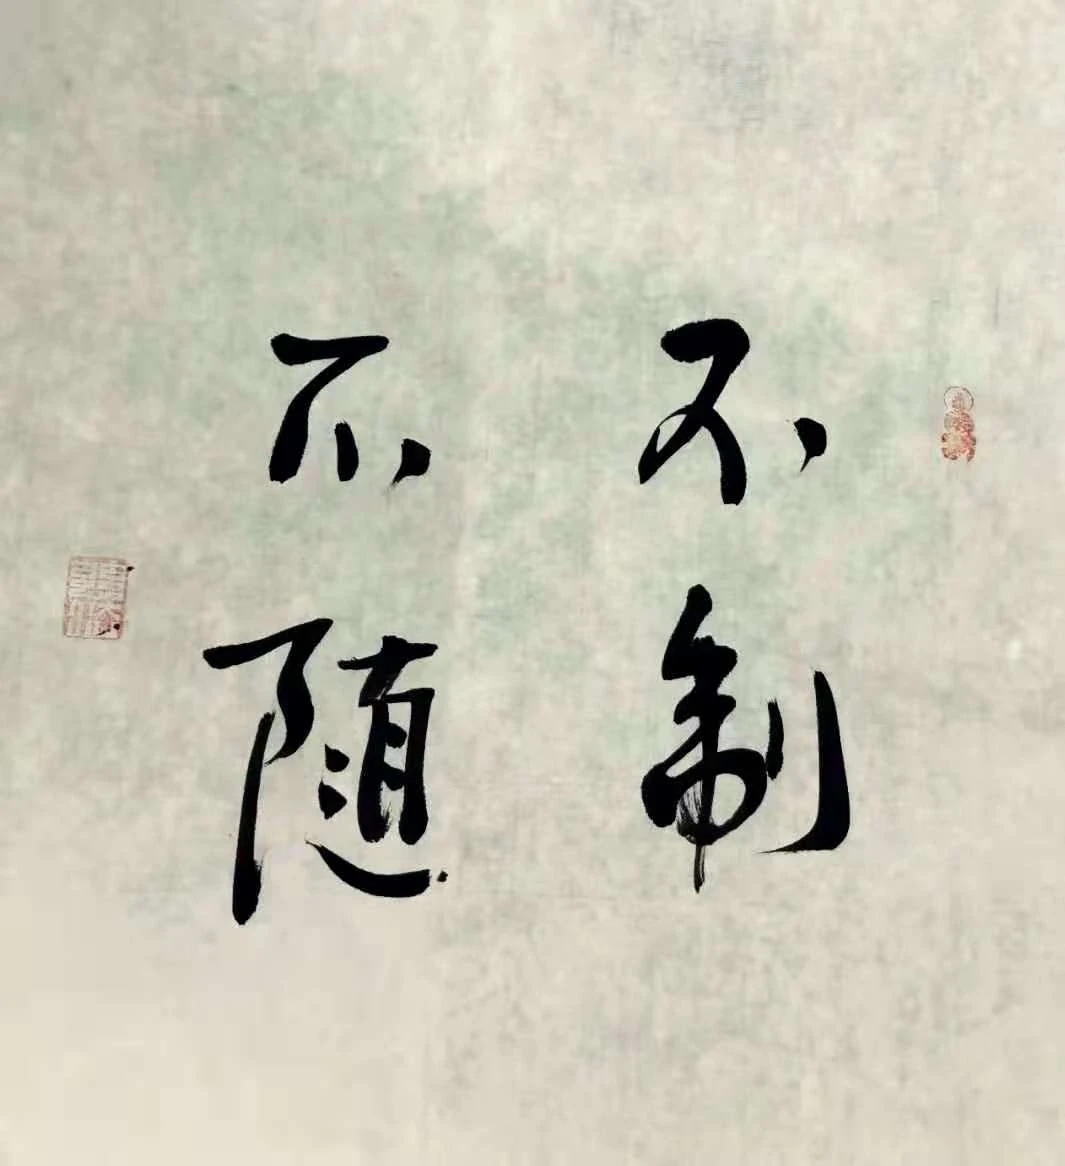 不制
不随